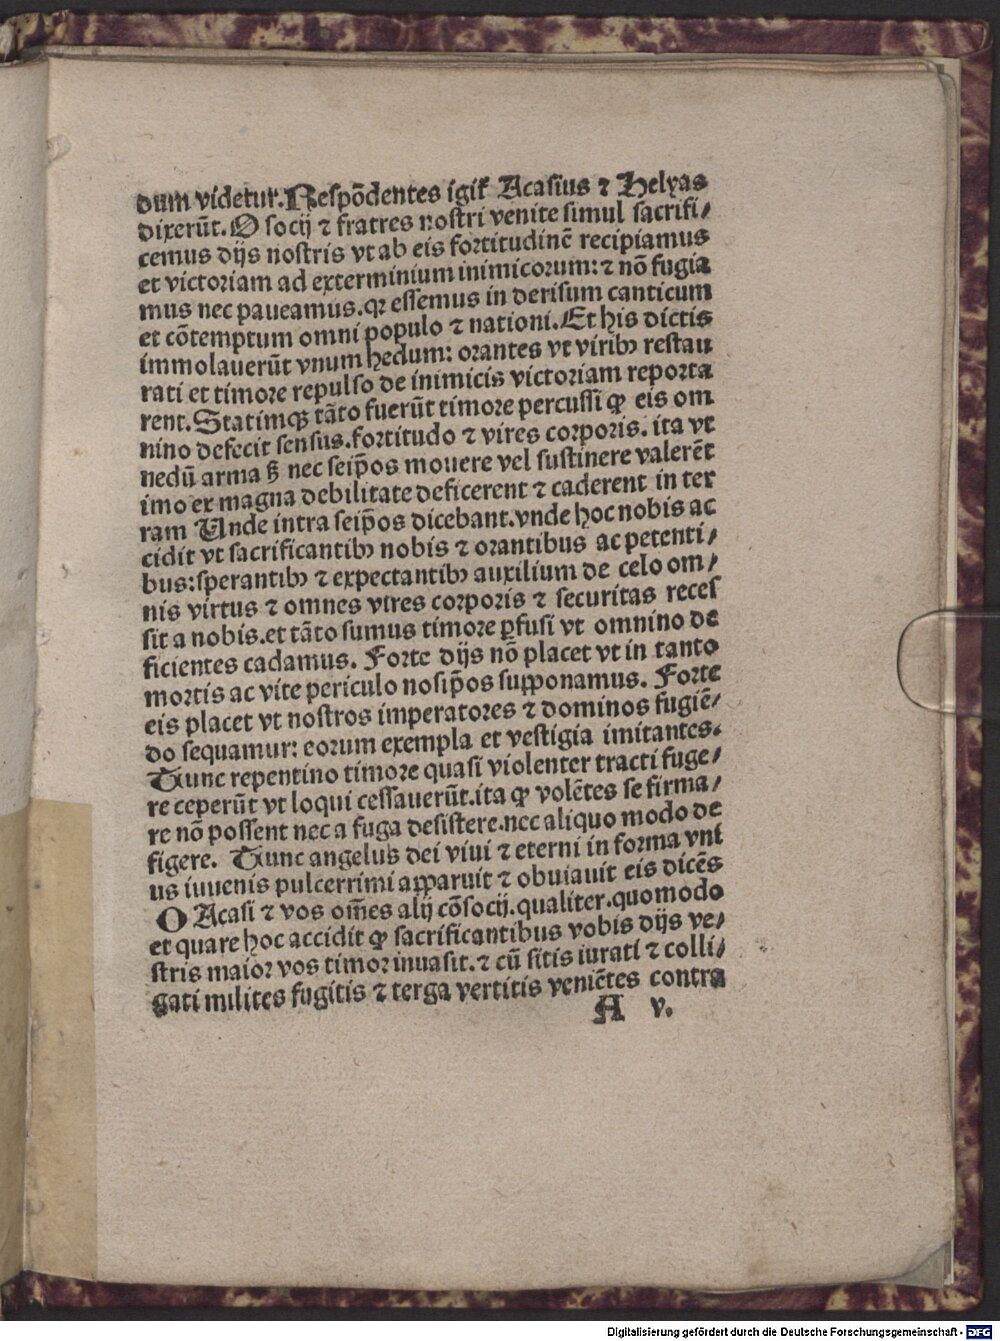 dum videtur. Respōdentes igit᷑ Acasius ⁊ Helyas
dixerūt. O socij ⁊ fratres nostri venite simul sacrifi⸗
cemus dijs nostris vt ab eis fortitudinē recipiamus
et victoriam ad exterminium inimicorum: ⁊ nō fugia
mus nec paveamus. qꝛ essemus in derisum canticum
et cōtemptum omni populo ⁊ nationi. Et his dictis
immolaverūt vnum hedum: orantes vt viribꝰ restau
rati et timore repulso de inimicis victoriam reporta
rent. Statimqꝫ tāto fuerūt timore percussi ꝙ eis om
nino defecit sensus. fortitudo ⁊ vires corporis. ita vt
nedū arma sꝫ nec seip̄os movere vel sustinere valerēt
imo ex magna debilitate deficerent ⁊ caderent in ter
ram Unde intra seip̄os dicebant. vnde hoc nobis ac
cidit vt sacrificantibꝰ nobis ⁊ orantibus ac petenti⸗
bus: sperantibꝰ ⁊ expectantibꝰ auxilium de celo om⸗
nis virtus ⁊ omnes vires corporis ⁊ securitas recef
sit a nobis. et tāto sumus timore ꝑfusi vt omnino de
ficientes cadamus. Forte dijs nō placet vt in tanto
mortis ac vite periculo nosip̄os supponamus. Forte
eis placet vt nostros imperatores ⁊ dominos fugiē⸗
do sequamur: eorum exempla et vestigia imitantes.
Tunc repentino timore quasi violenter tracti fuge⸗
re ceperūt vt loqui cessaverūt. ita ꝙ volētes se firma⸗
re nō possent nec a fuga desistere. nec aliquo modo de
figere. Tunc angelus dei vivi ⁊ eterni in forma vni
us iuvenis pulcerrimi apparuit ⁊ obuiauit eis dicēs
O Acasi ⁊ vos om̄es alij cōsocij. qualiter. quomodo
et quare hoc accidit ꝙ sacrificantibus vobis dijs ve⸗
stris maior vos timor invasit. ⁊ cū sitis iurati ⁊ colli⸗
gati milites fugitis ⁊ terga vertitis veniētes contra
A v.
Digitalisierung gefördert durch die Deutsche Forschungsgemeinschaft - DFG